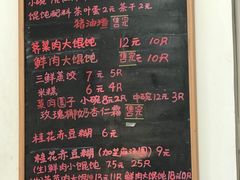 馄饨配料 茶叶蛋2元 茶干2元
猪油渣 售完
荠菜肉大馄饨 12元 10只
鲜肉大馄饨 售完 10只
三鲜蒸饺 7元 5只
米糕 6元 4只
蒸肉圆子 小碗8元 中碗12元 3只
玫瑰椰奶杏仁霜 售完
桂花赤豆糊 6元
桂花赤豆糊(加芝麻汤圆) 9元
(生)鲜肉小馄饨 7.5元 25只